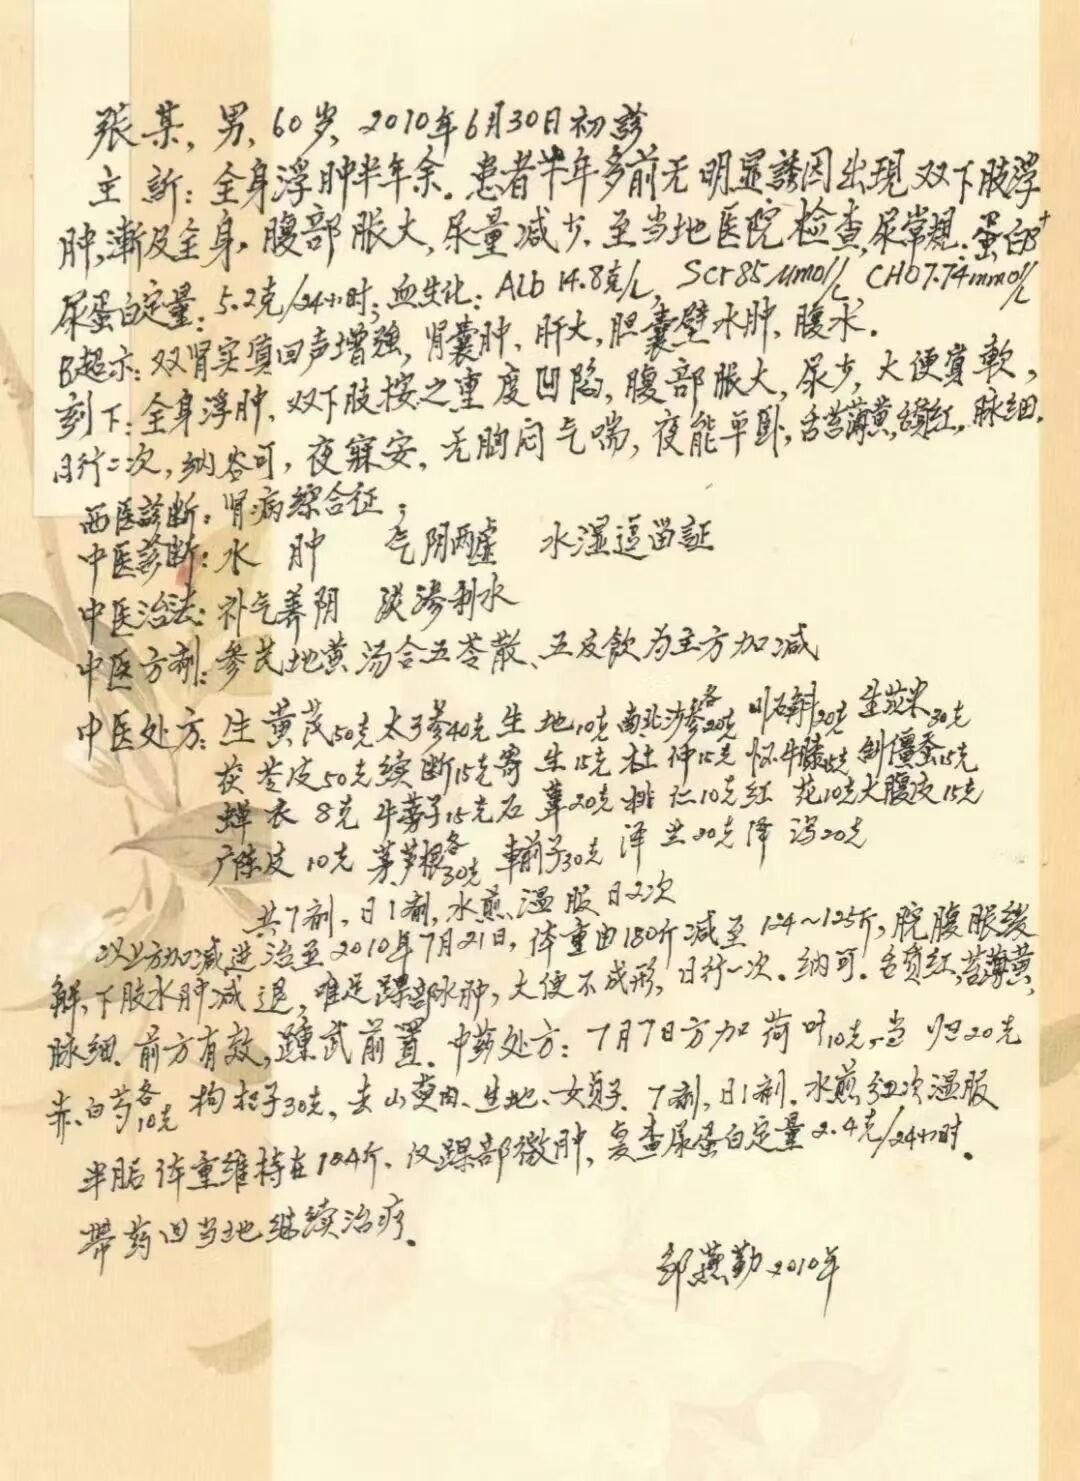 张某，男，60岁，2010年6月30日初診
主 訴：全身浮肿半年余。患者半年多前无明显誘因出現双下肢浮
肿，漸及全身，腹部胀大，尿量减少，至当地医院检查，尿常規：蛋白3+
尿蛋白定量：5.2克/24小时；血生化：Alb 14.8克/L，Scr 85μmol/L，CHO 7.74mmol/L
B超示：双肾实质回声增强，肾囊肿，肝大，胆囊壁水肿，腹水。
刻下：全身浮肿，双下肢按之重度凹陷，腹部胀大，尿少，大便質軟，
日行二次，纳谷可，夜寐安，无胸闷气喘，夜能平卧，舌苔薄黄，舌質红，脉细。
西医診断：肾病综合征；
中医診断：水 肿 气阴两虚 水湿逗留証
中医治法：补气养阴 淡渗利水
中医方剂：参芪地黄汤合五苓散、五皮飲为主方加减
中医处方：生黄芪50克 太子参40克 生地10克 南北沙参各20克 川石斛20克 生苡米30克
茯苓皮50克 续断15克 寄生15克 杜仲15克 怀牛膝15克 制僵蚕15克
蝉衣8克 牛蒡子15克 石葦20克 桃仁10克 红花10克 大腹皮15克
广陈皮10克 茅芦根各30克 車前子30克 泽兰20克 泽泻20克
共7剂，日1剂，水煎温服日2次
以上方加减进治至2010年7月21日，体重由180斤减至124～125斤，脘腹胀缓
解，下肢水肿减退，难足踝部水肿，大便不成形，日行一次。纳可。舌质红，苔薄黄，
脉细。前方有效，踵武前置。中药处方：7月7日方加荷叶10克，当归20克
赤、白芍各10克 枸杞子30克，去山萸肉、生地、女贞子。7剂，日1剂。水煎分2次温服
半月后体重维持在104斤，仅踝部微肿，复查尿蛋白定量2.4克/24小时。
带药回当地继续治疗。
邹燕勤2010年